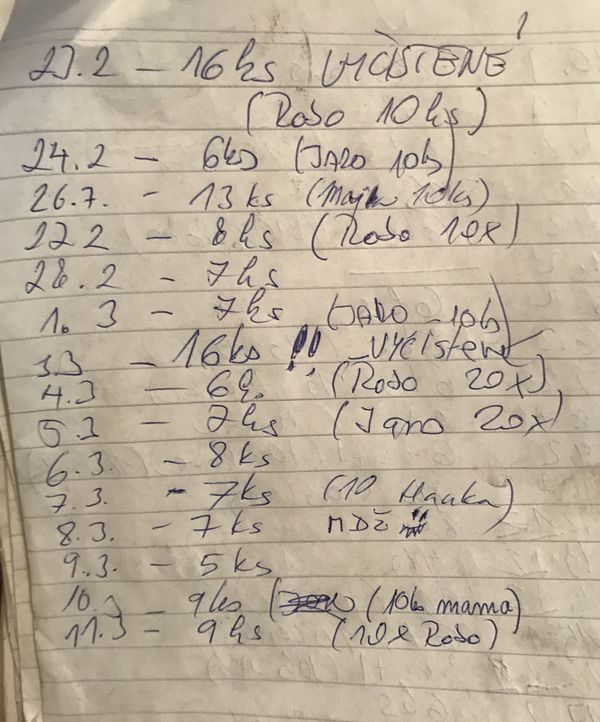 23.2 - 16ks VYČISTENÉ !
(Rošo 10ks)
24.2 - 6ks (JARO 10ks)
26.2. - 13 ks (Majk 10ks)
27.2 - 8ks (Rošo 10x)
28.2 - 7ks
1. 3 - 7ks (JARO - 10ks)
3.3 - 16ks !! VYČISTENÉ
4.3 - 6k. (Rošo 20x)
5.3 - 7ks (Jaro 20x)
6.3. - 8ks
7.3. - 7ks (10 Hanka)
8.3. - 7ks MDŽ !!
9.3. - 5ks
10.3 - 9ks (10ks mama)
11.3 - 9ks (10x Rošo)